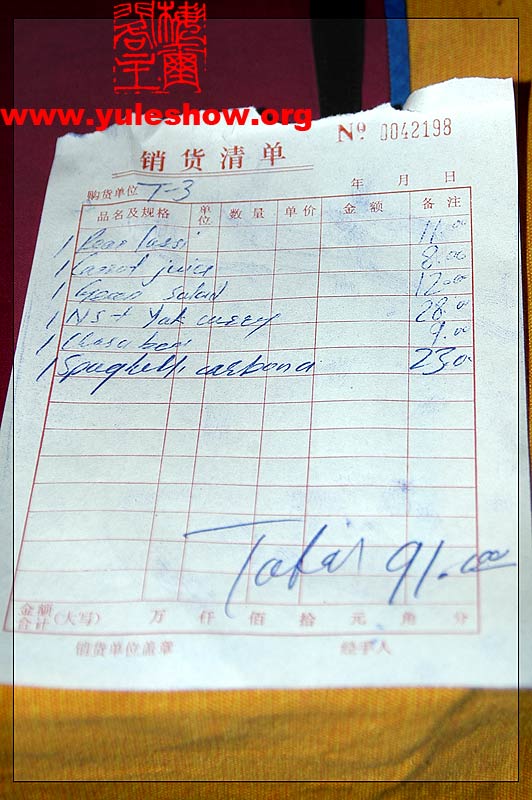 www.yuleshow.org
№ 0042198
销货清单
购货单位 T-3 年 月 日
品名及规格 单位 数量 单价 金额 备注
1 lassi 11.00
1 Carrot juice 8.00
1 Green salad 12.00
1 NS+ Yak curry 28.00
1 9.00
1 Spaghetti carbona 23.0
Total 91.000
金额合计(大写) 万 仟 佰 拾 元 角 分
销货单位盖章 经手人